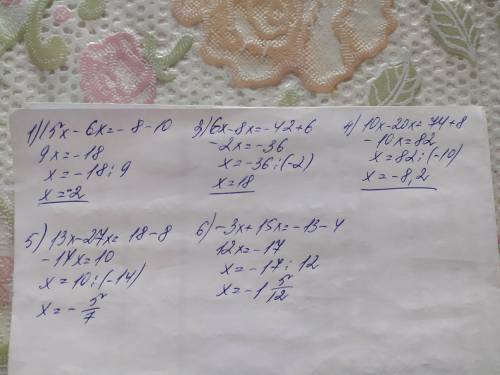 1) 15x - 6x = - 8 - 10
9x = -18
x = -18 : 9
x = -2
2) 6x - 8x = -42 + 6
-2x = -36
x = -36 : (-2)
x = 18
4) 10x - 20x = 74 + 8
-10x = 82
x = 82 : (-10)
x = -8,2
5) 13x - 27x = 18 - 8
-14x = 10
x = 10 : (-14)
x = - 5/7
6) -3x + 15x = -13 - 4
12x = -17
x = -17 : 12
x = -1 5/12